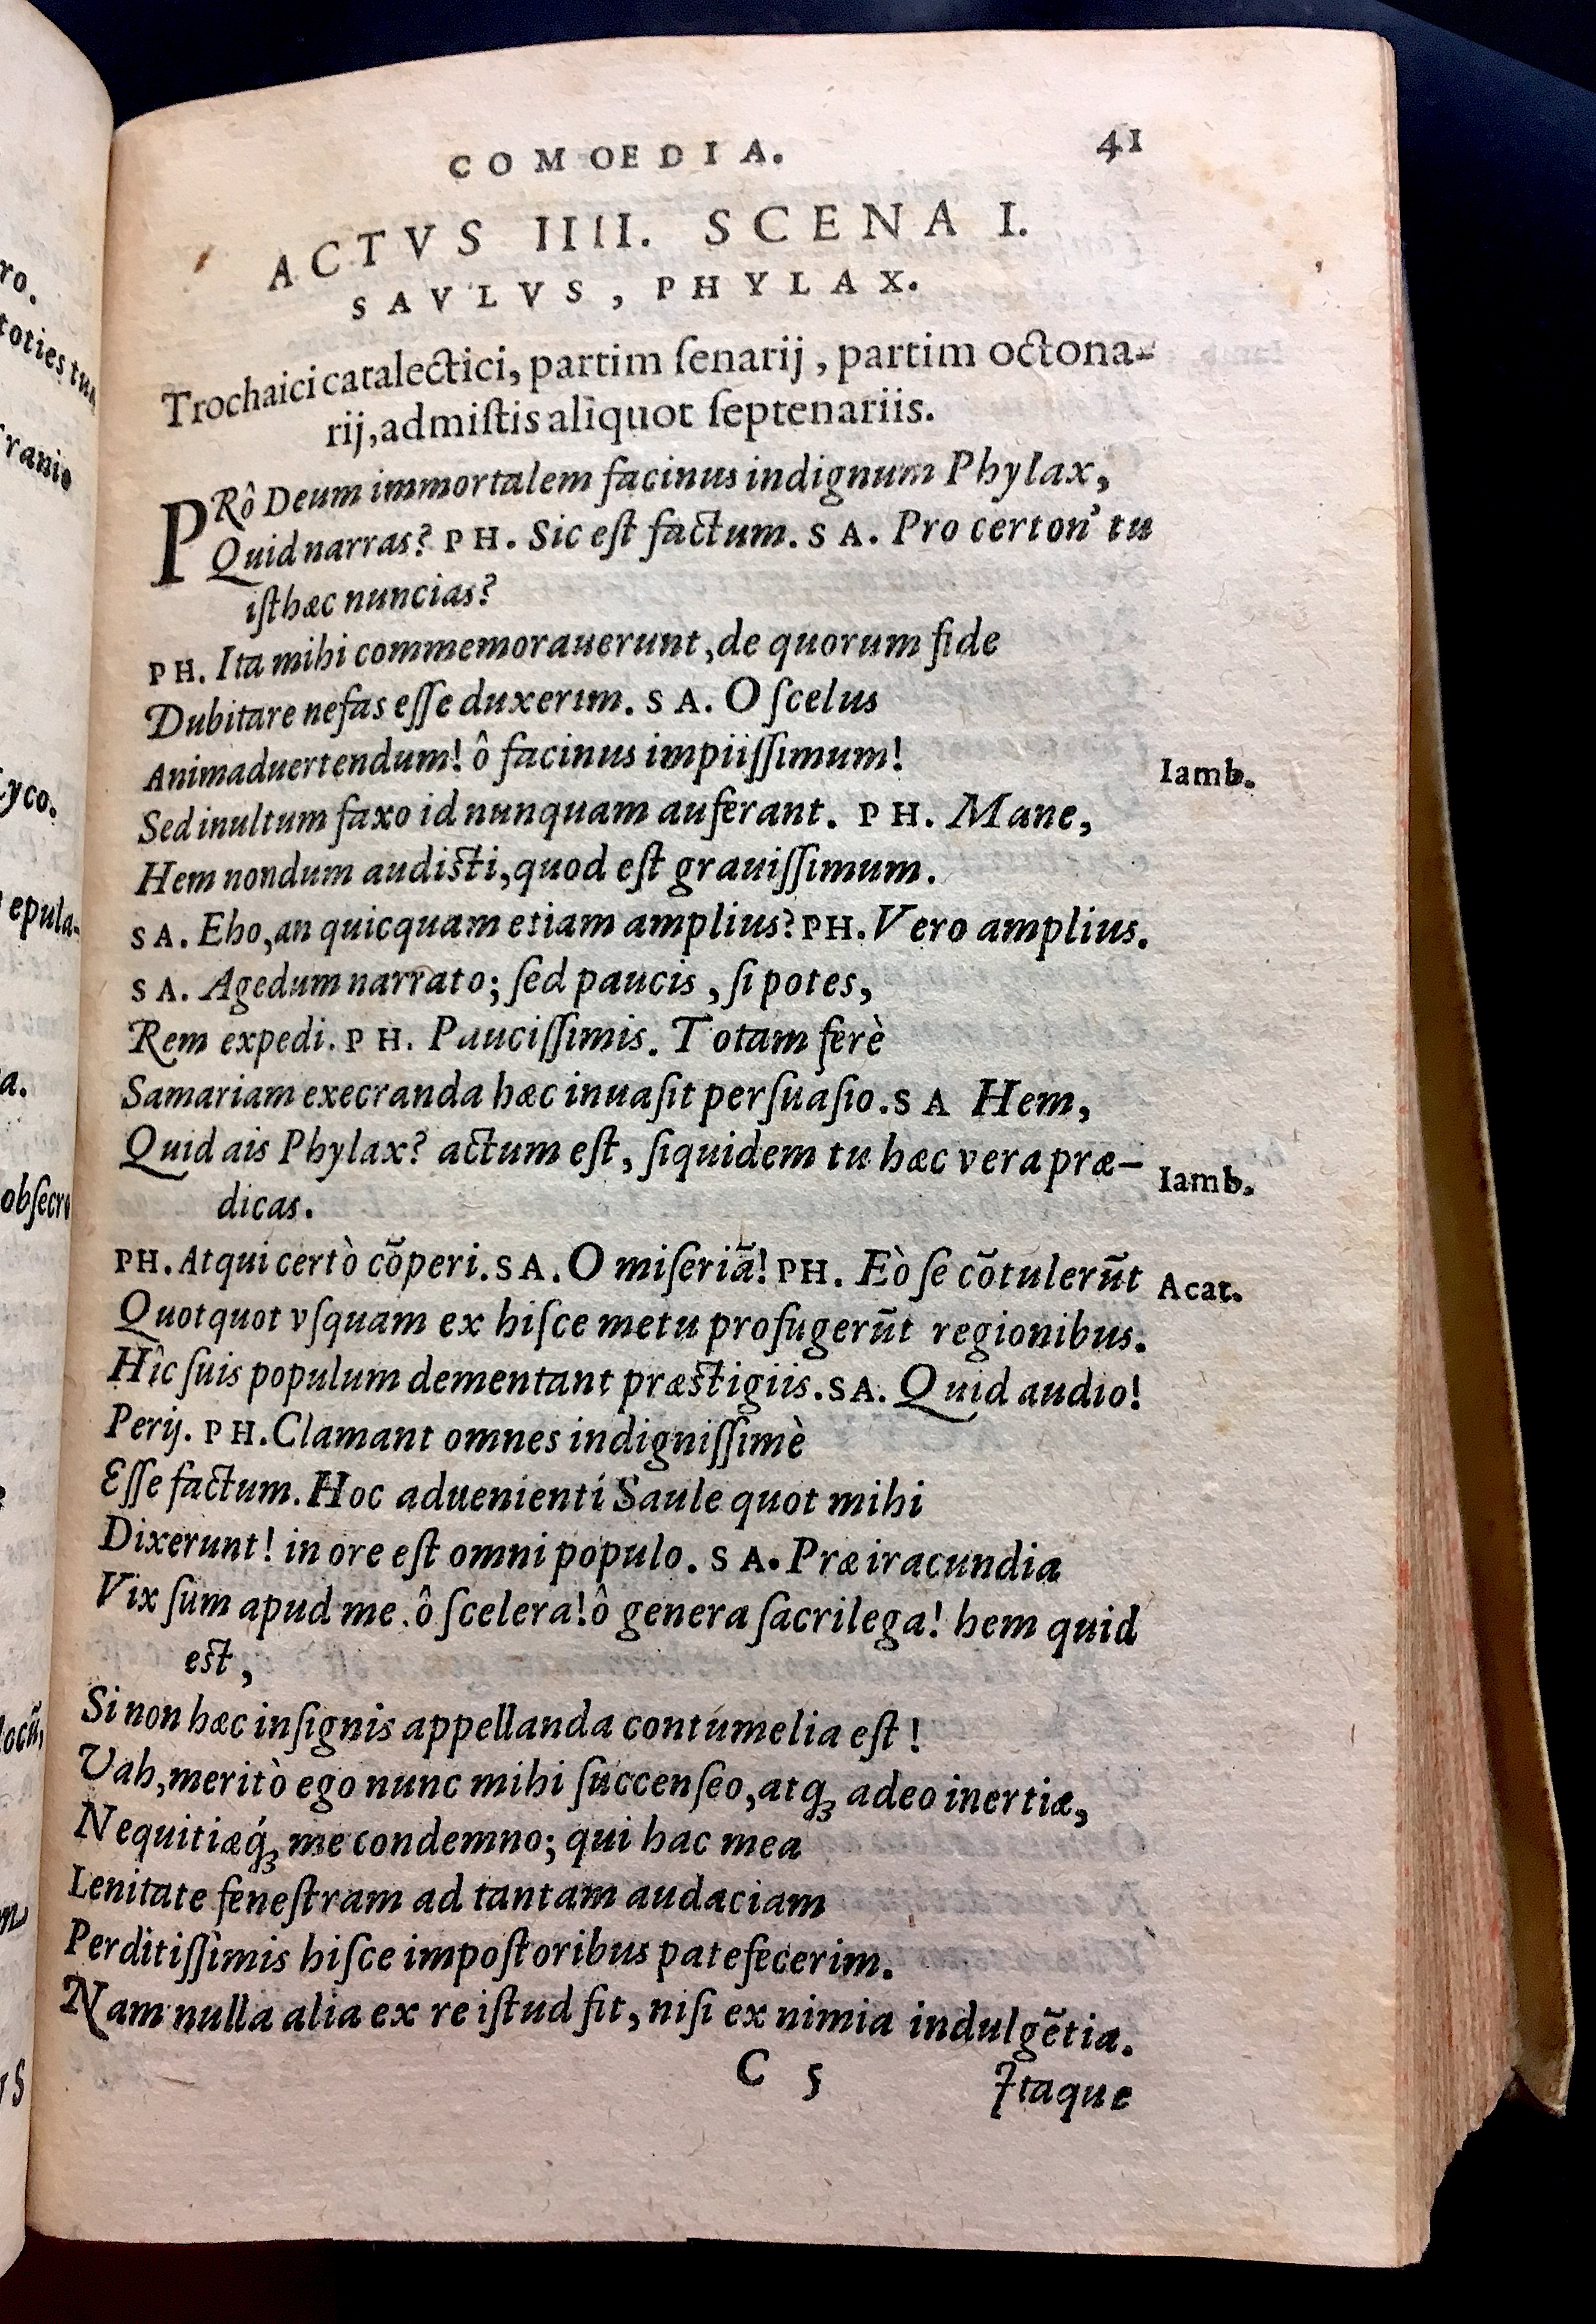 COMOEDIA. 41
ACTVS IIII. SCENA I.
SAVLVS, PHYLAX.
Trochaici catalectici, partim ſenarij, partim octona-
rij, admiſtis aliquot ſeptenariis.
PRô Deum immortalem facinus indignum Phylax,
Quid narras? PH. Sic eſt factum. SA. Pro certon' tu
iſthæc nuncias?
PH. Ita mihi commemorauerunt, de quorum fide
Dubitare nefas eſſe duxerim. SA. O ſcelus
Animaduertendum! ô facinus impiiſſimum! Iamb.
Sed inultum faxo id nunquam auferant. PH. Mane,
Hem nondum audiſti, quod eſt grauiſſimum.
SA. Eho, an quicquam etiam amplius? PH. Vero amplius.
SA. Agedum narrato; ſed paucis, ſi potes,
Rem expedi. PH. Pauciſſimis. Totam ferè
Samariam execranda hæc inuaſit perſuaſio. SA Hem,
Quid ais Phylax? actum eſt, ſiquidem tu hæc vera præ- Iamb.
dicas.
PH. Atqui certò cõperi. SA. O miſeriã! PH. Eò ſe cõtulerũt Acat.
Quotquot vſquam ex hiſce metu profugerũt regionibus.
Hîc ſuis populum dementant præſtigiis. SA. Quid audio!
Perij. PH. Clamant omnes indigniſſimè
Eſſe factum. Hoc aduenienti Saule quot mihi
Dixerunt! in ore eſt omni populo. SA. Præ iracundia
Vix ſum apud me. ô ſcelera! ô genera ſacrilega! hem quid
eſt,
Si non hæc inſignis appellanda contumelia eſt!
Vah, meritò ego nunc mihi ſuccenſeo, atq; adeo inertiæ,
Nequitiæq́; me condemno; qui hac mea
Lenitate feneſtram ad tantam audaciam
Perditiſſimis hiſce impoſtoribus patefecerim.
Nam nulla alia ex re iſtud fit, niſi ex nimia indulgẽtia.
C 5 Itaque